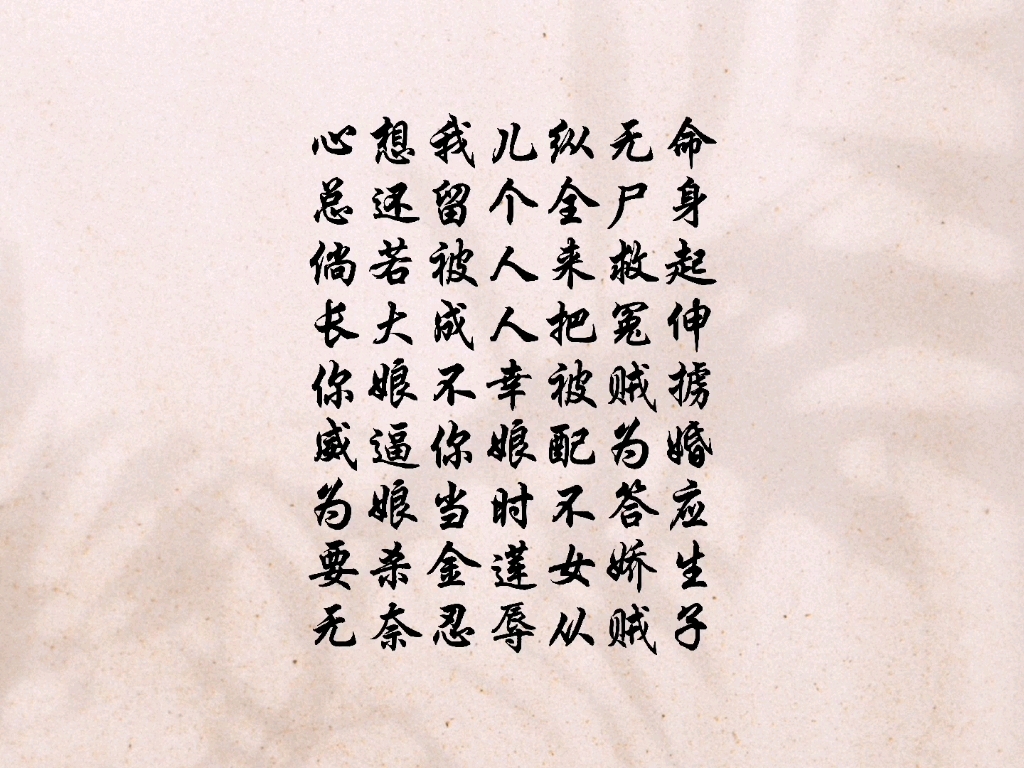 心想我儿纵无命
总还留个全尸身
倘若被人来救起
长大成人把冤伸
你娘不幸被贼掳
威逼你娘配为婚
为娘当时不答应
要杀金莲女娇生
无奈忍辱从贼子